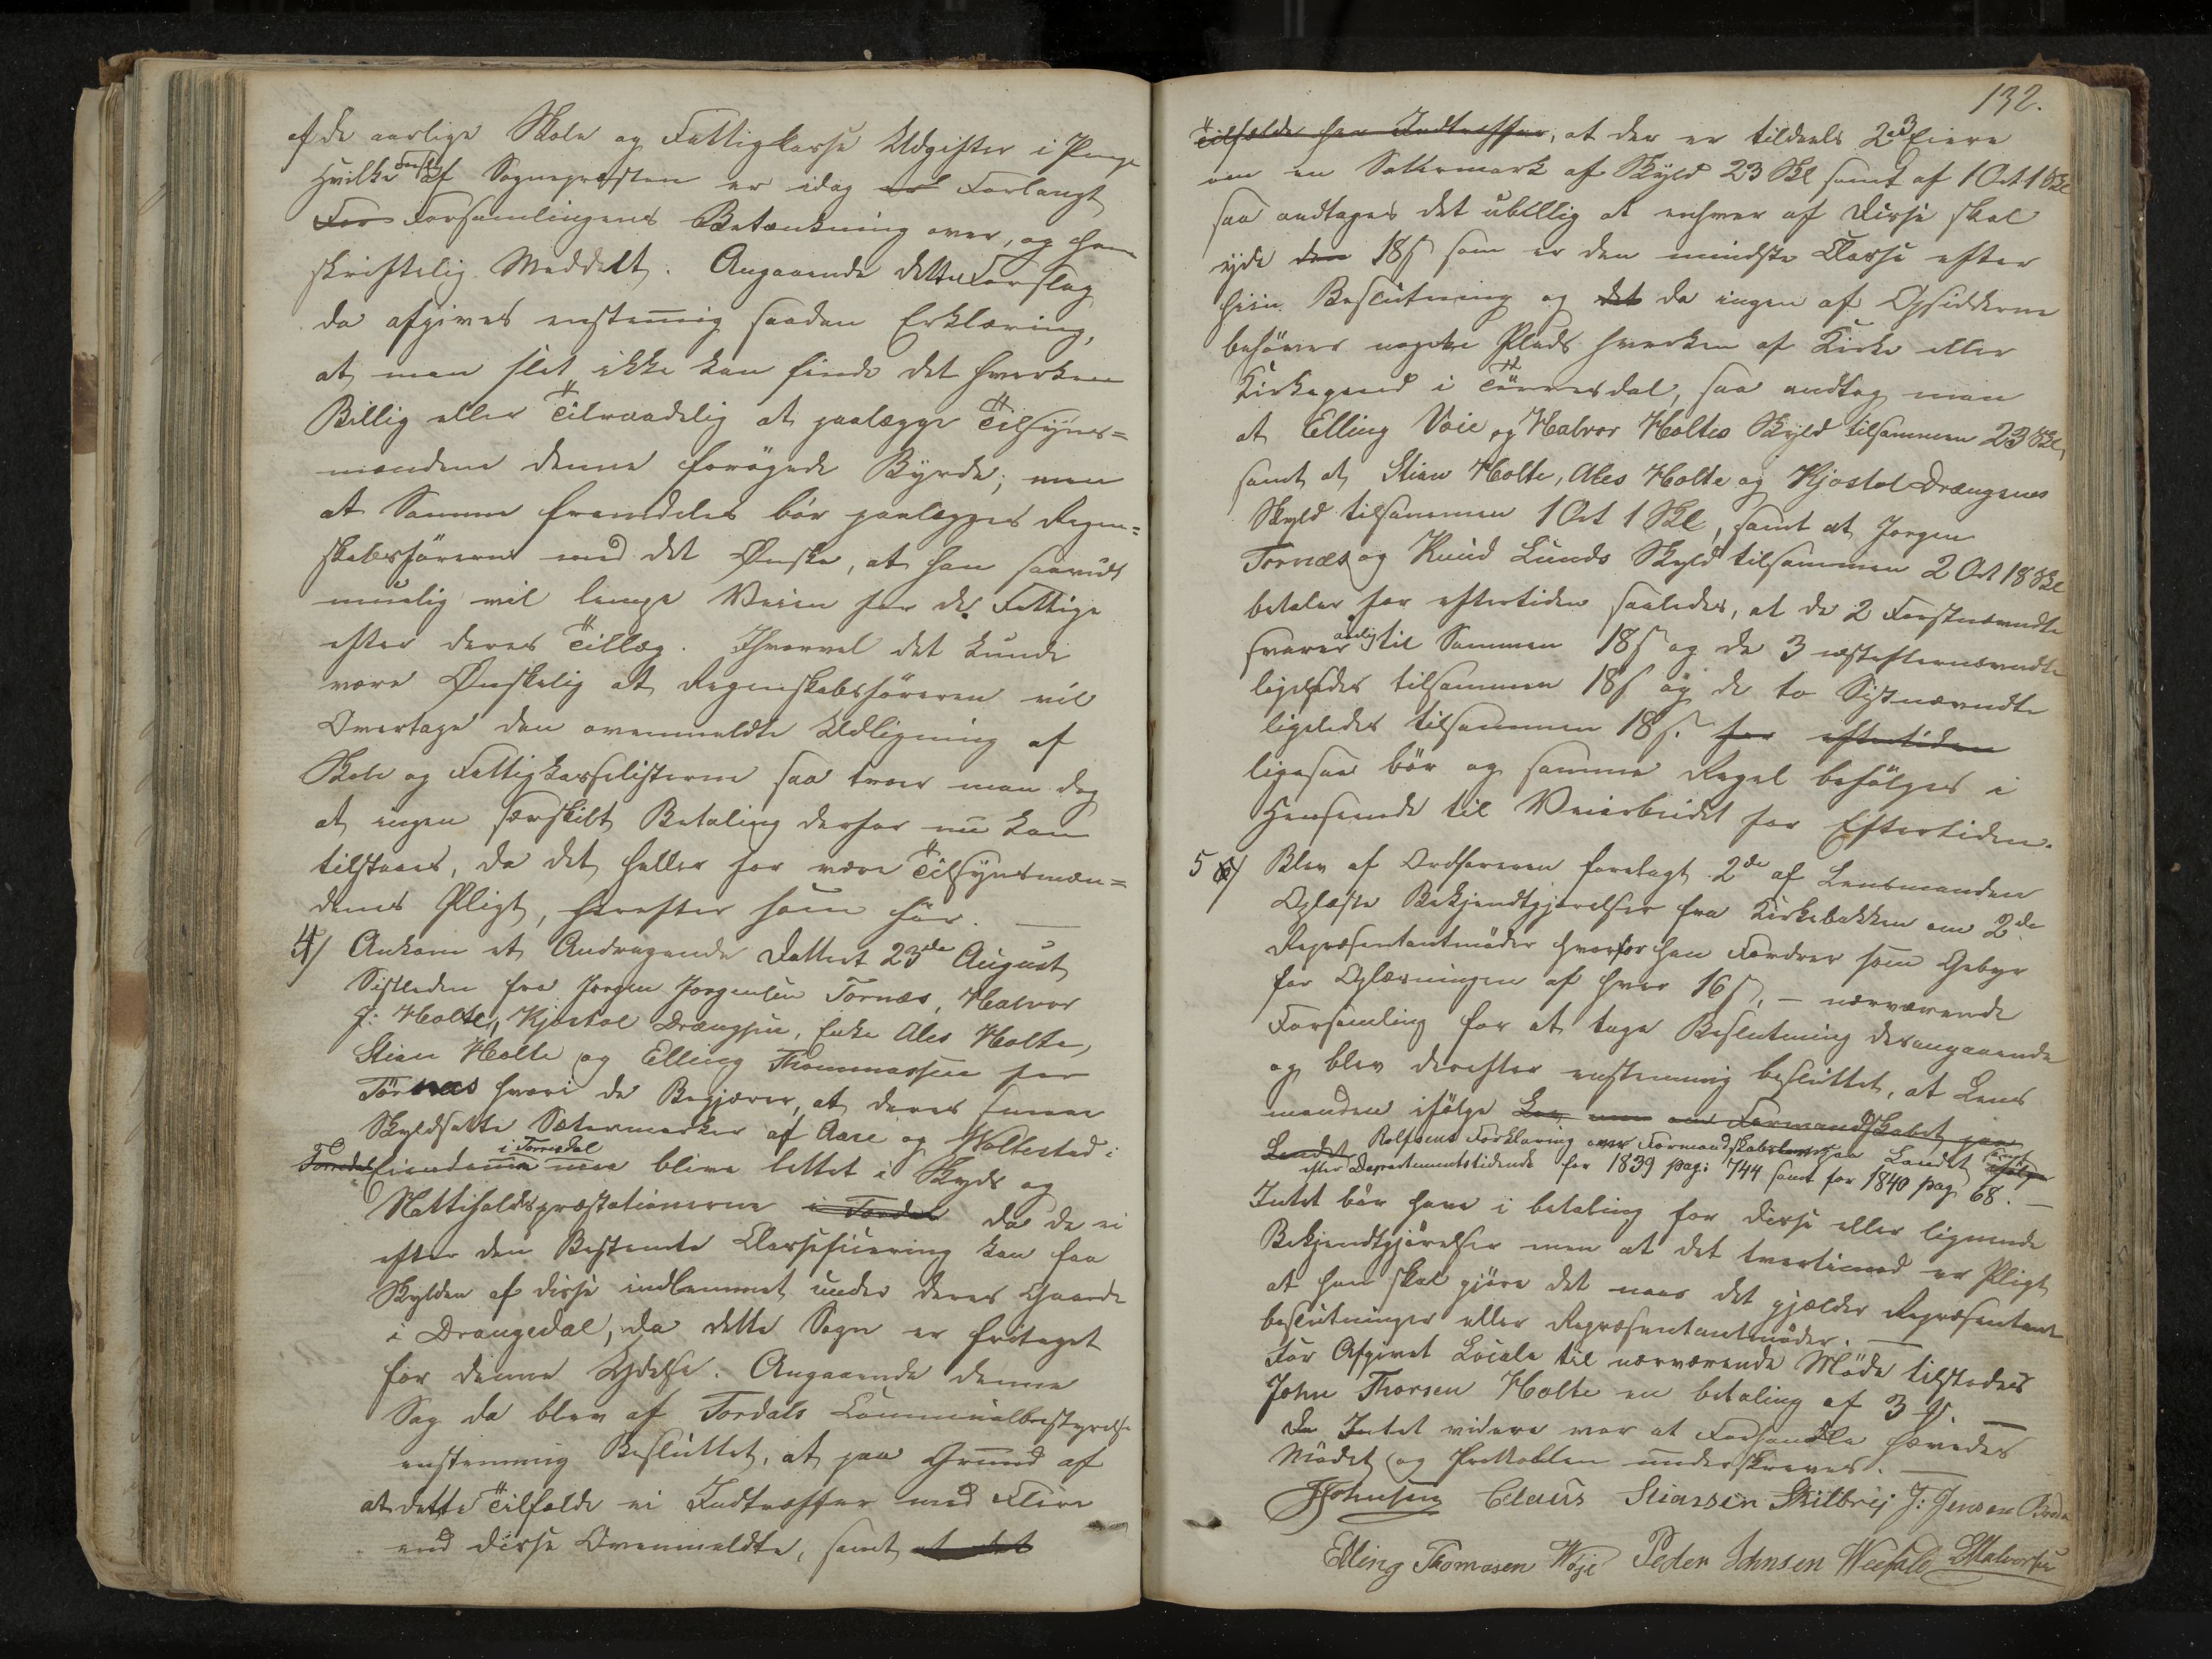 af de aarlige Skole og Fattigkasse Udgifter i Penge
hvilke Forslag af Sognepræsten er idag Forlangt
For Forsamlingens Betænkning over, og ham
skriftelig Meddelt. Angaaende dette Forslag
da afgives enstemig saadan Erklæring,
at man slet ikke kan finde det hverken
Billig eller Tilraadelig at paalægge Tilsyns-
mændene denne forøgede Byrde; men
at Samme fremdeles bør paalægges Regen-
skabsføreren med det Ønske, at han saavidt
muelig vil lempe Veien for de Fattige
efter deres Tillæg. Ihvorvel det kunde
være Ønskelig at Regenskabsføreren vil
Overtage den ovenmeldte Udligning af
Skole og Fattigkasselisterne saa troer man dog
at ingen særskilt Betaling derfor nu kan
tilstaaes, da det heller for være Tilsynsmæn-
denes Pligt, herefter som før. —
4/ Ankom et Andragende Dattert 23de August
Sistleden fra Jorgen Jorgensen Tornæs, Halvor
J: Holte, Kjøstol Drængsen, Enke Ales Holte,
Stian Holte og Elling Thommassen for
Törnæs hvori de Begjærer, at deres smaae
Skyldsatte Sætermarker af Aase og Woltestad i
Torredal Eiendomme i Torredal maa blive lettet i Skyds og
Nattiholdspræstationerne i Tordal da de ei
efter den Bestemte Classeficering kan faa
Skylden af disse indlemmet under deres Gaarde
i Drangedal, da dette Sogn er fritaget
for denne Ydelse. Angaaende denne
Sag da blev af Tordals Communalbestyrelse
enstemmig Besluttet, at paa Grund af
at dette Tilfælde ei Indtræffer med Flere
end disse Ovenmeldte, samt at det
132.
Tilfælde her Indtræffer, at der er tildeels 2 a 3 Eiere
om en Sætermark af Skyld 23 Skl samt af 1 Ort 1 Skl
saa andtages det ubillig at enhver af disse skal
yde den 18 s som er den mindste Classe efter
hiin Beslutning og det da ingen af Opsidderne
behøver nogetre Plads hverken af Kirke eller
Kirkegaard i Tørresdal, saa andtog man
at Elling Voie og Halvor Holtes Skyld tilsammen 23 Skl,
samt at Stian Holte, Ales Holte og Kjøstol Drængenes
Skyld tilsammen 1 Ort 1 Skl, samt at Jorgen
Tornæs og Knud Lunds Skyld tilsammen 2 Ort 18 Skl
betaler for eftertiden saaledes, at de 2 Førstnævndte
svarer aarlig til Sammen 18 s og de 3 næstefternævndte
ligeledes tilsammen 18 s og de to Sistnævndte
ligeledes tilsammen 18 s. for eftertiden
ligesaa bør og samme Regel befølges i
Henseende til Veiarbeidet for Eftertiden.
5/ Blev af Ordføreren forelagt 2de af Lensmanden
Oplæste Bekjendtgjørelser fra Kirkebakken om 2de
Repræsentantmøder hvorfor han Fordrer som Gebyr
for Oplæsningen af hver 16 s, — nærværende
Forsamling for at tage Beslutning desangaaende
og blev derefter enstemmig besluttet, at Lens
manden ifølge Lov om Formandskabet paa
Landet Rolfsens Forklaring over Formandskabsloven paa Landet samt
efter Departementstidende for 1839 pag: 744 samt for 1840 pag 68. —
Intet bør have i betaling for disse eller lignende
Bekjendtgjørelser men at det tvertimod er Pligt
at han skal gjøre det naar det gjælder Repræsentant
beslutninger eller Repræsentantmøder. —
For Afgivet Locale til nærværende Møde tilstodes
John Thorsen Holte en betaling af 3
Da Intet videre var at Forhandle hævedes
Mødet og Protkollen underskreves. —
JJohnsen Claus Stiansen Skilbrej J: Jensen Broda
Elling Thomasen Woje Peder Johnsen Weefald EHalvorsen